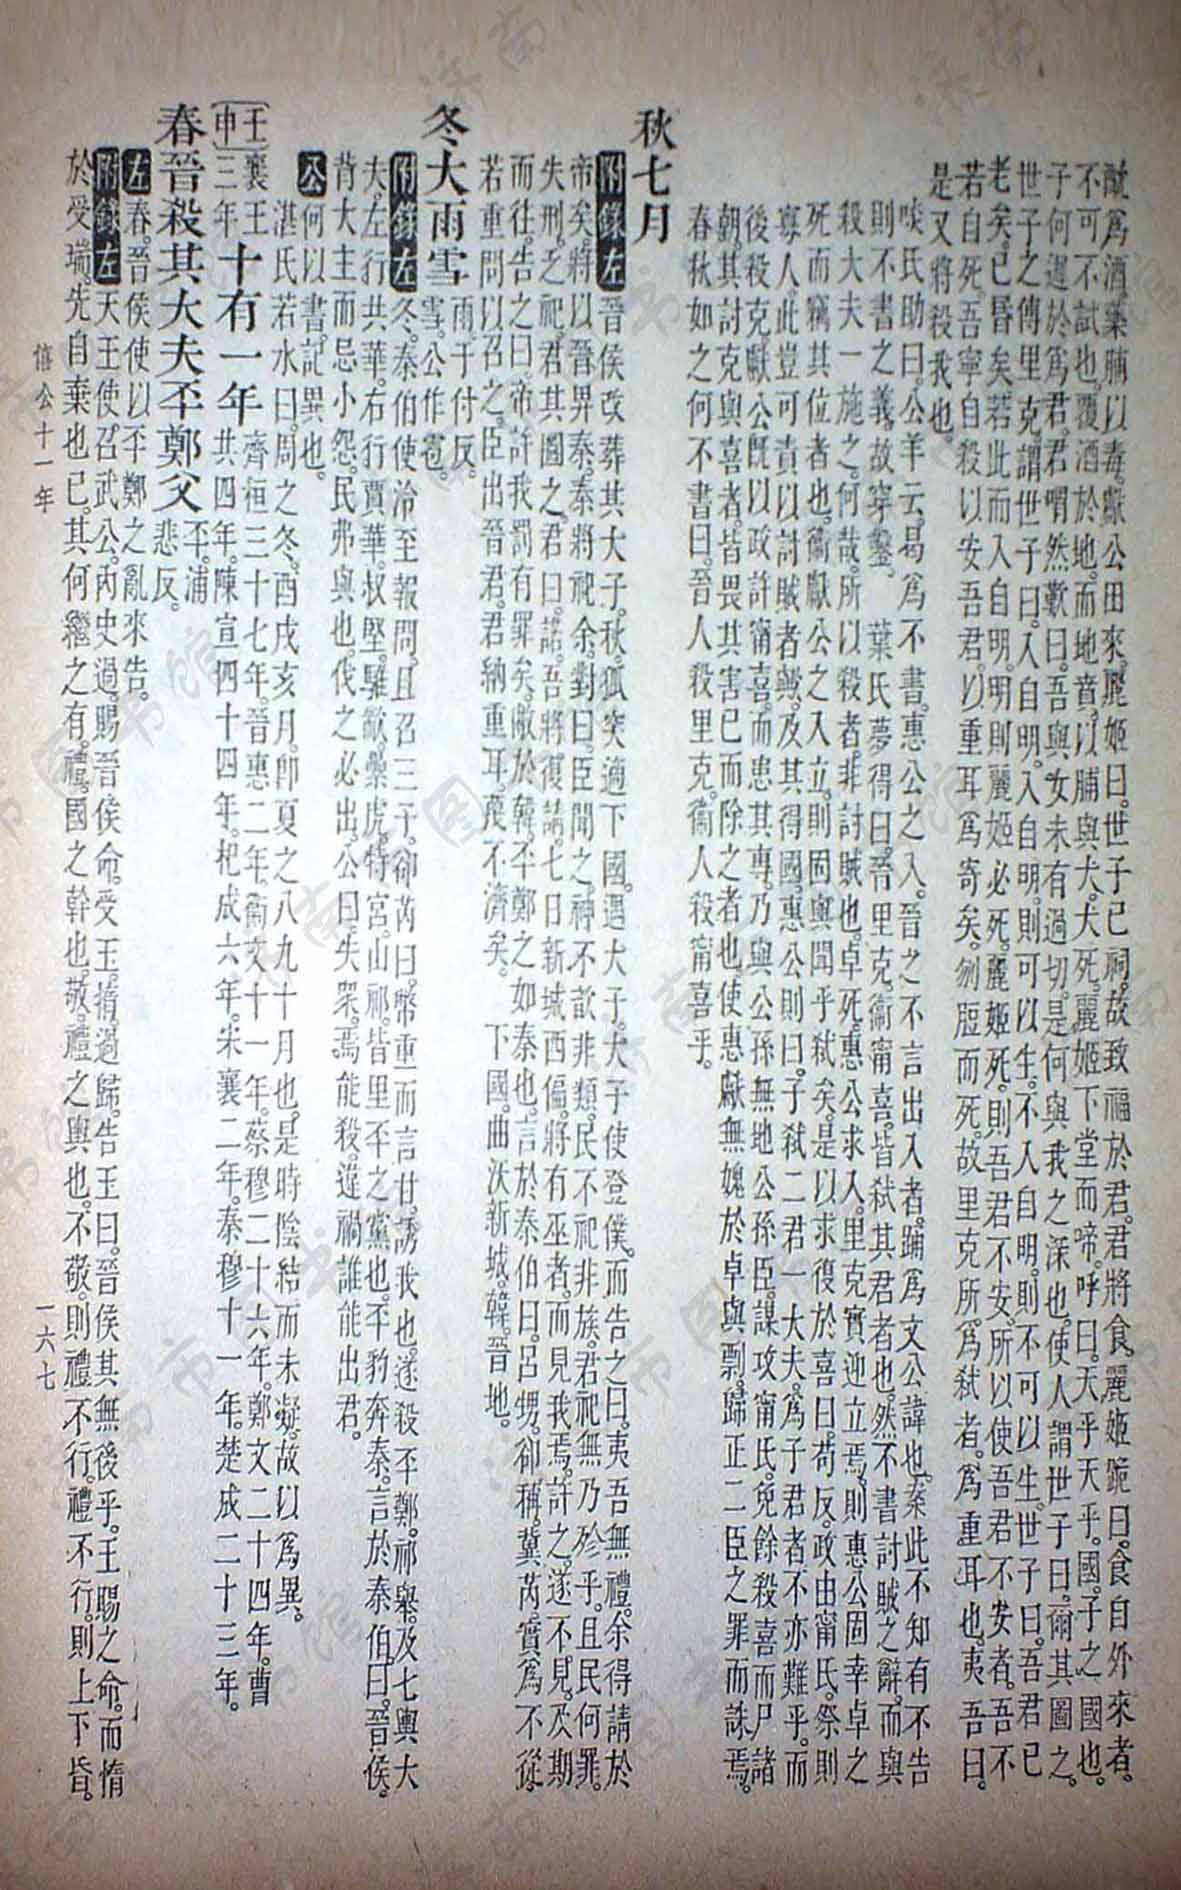 酖爲酒藥脯以毒獻公田來麗姬曰世子已祠故致福於君君將食麗姬跪曰食自外來者
不可不試也覆酒於地而地賁以脯與犬犬死麗姬下堂而啼呼曰天乎天乎國子之國也
子何遲於爲君君喟然歎曰吾與女未有過切是何與我之深也使人謂世子曰爾其圖之
世子之傅里克謂世子曰入自明入自明則可以生不入自明則不可以生世子曰吾君已
老矣已昏矣若此而入自明明則麗姬必死麗姬死則吾君不安所以使吾君不安者吾不
若自死吾寧自殺以安吾君以重耳爲寄矣刎脰而死故里克所爲弒者爲重耳也夷吾曰
是又將殺我也
啖氏助曰公羊云曷爲不書惠公之入晉之不言出入者踊爲文公諱也案此不知有不告
則不書之義故穿鑿　葉氏夢得曰晉里克衞甯喜皆弒其君者也然不書討賊之辭而與
殺大夫一施之何哉所以殺者非討賊也卓死惠公求入里克實迎立焉則惠公固幸卓之
死而竊其位者也衞獻公之入立則固與聞乎弒矣是以求復於喜曰苟反政由甯氏祭則
寡人此豈可責以討賊者歟及其得國惠公則曰子弒二君一大夫爲子君者不亦難乎而
後殺克獻公既以政許甯喜而患其專乃與公孫無地公孫臣謀攻甯氏免餘殺喜而尸諸
朝其討克與喜者皆畏其害己而除之者也使惠獻無媿於卓與剽歸正二臣之罪而誅焉
春秋如之何不書曰晉人殺里克衞人殺甯喜乎
秋七月
附錄左晉侯改葬其大子秋狐突適下國遇大子大子使登僕而告之曰夷吾無禮余得請於
帝矣將以晉畀秦秦將祀余對曰臣聞之神不歆非類民不祀非族君祀無乃殄乎且民何罪
失刑乏祀君其圖之君曰諾吾將復請七日新城西偏將有巫者而見我焉許之遂不見及期
而往告之曰帝許我罰有罪矣敝於韓丕鄭之如秦也言於秦伯曰呂甥郤稱冀芮實爲不從
若重問以召之臣出晉君君納重耳蔑不濟矣　下國曲沃新城韓晉地
冬大雨雪雨于付反
雪公作雹
附錄左冬秦伯使泠至報問且召三子郤芮曰幣重而言甘誘我也遂殺丕鄭祁舉及七輿大
夫左行共華右行賈華叔堅騅歂纍虎特宮山祁皆里丕之黨也丕豹奔秦言於秦伯曰晉侯
背大主而忌小怨民弗與也伐之必出公曰失眾焉能殺違禍誰能出君
公何以書記異也
湛氏若水曰周之冬酉戌亥月卽夏之八九十月也是時陰結而未凝故以爲異
壬申襄王三年十有一年齊桓三十七年晉惠二年衞文十一年蔡穆二十六年鄭文二十四年曹
共四年陳宣四十四年杞成六年宋襄二年秦穆十一年楚成二十三年
春晉殺其大夫丕鄭父丕浦
悲反
左春晉侯使以丕鄭之亂來告
附錄左天王使召武公內史過賜晉侯命受玉惰過歸告王曰晉侯其無後乎王賜之命而惰
於受瑞先自棄也已其何繼之有禮國之幹也敬禮之輿也不敬則禮不行禮不行則上下昏
僖公十一年
一六七